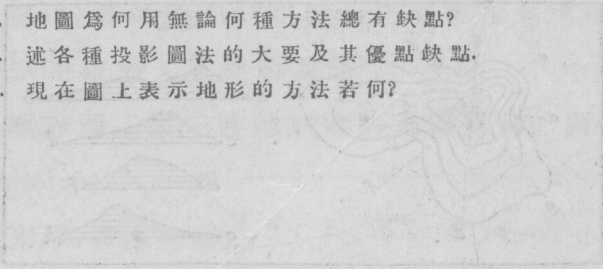 地圖爲何用無論何種方法總有缺點?
述各種投影圖法的大要及其優點缺點.
現在圖上表示地形的方法若何?